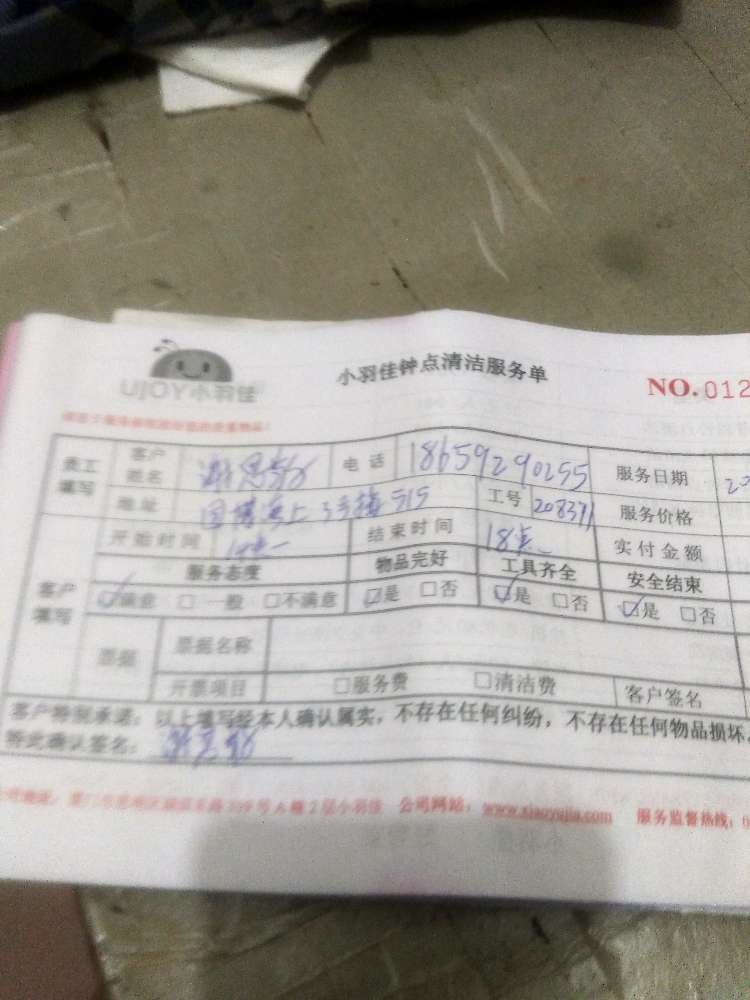 UJOY小羽佳
小羽佳钟点清洁服务单
NO.012
员工填写 客户姓名 电话 18659290255 服务日期 20
地址 上 3号楼 515 工号 208371 服务价格
开始时间 结束时间 18点 实付金额
客户填写 服务态度 物品完好 工具齐全 安全结束
☑满意 □一般 □不满意 ☑是 □否 ☑是 □否 ☑是 □否
票据 票据名称
开票项目 □服务费 □清洁费 客户签名
客户特别承诺:以上填写经本人确认属实,不存在任何纠纷,不存在任何物品损坏,
特此确认签名:
公司地址: 339号A幢2层小羽佳 公司网站:www.xiaoyujia.com 服务监督热线:0